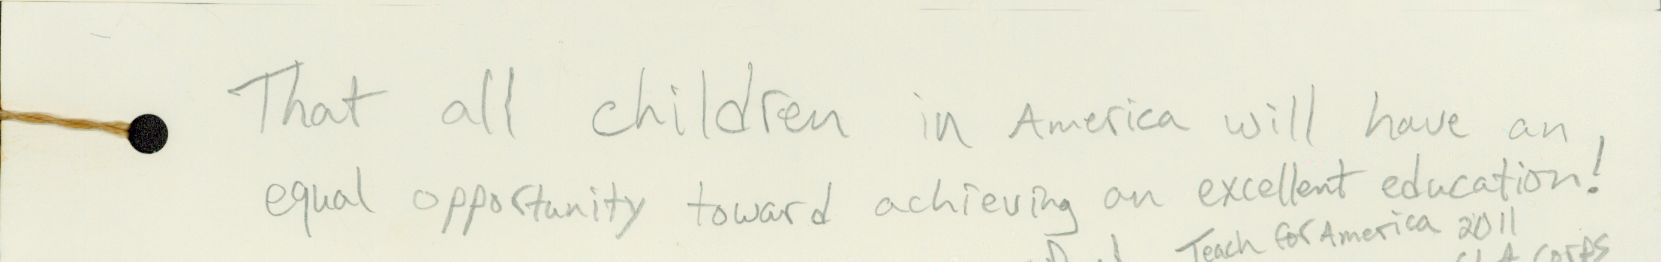 That all children in America will have an
equal opportunity toward achieving an excellent education!
Teach for America 2011